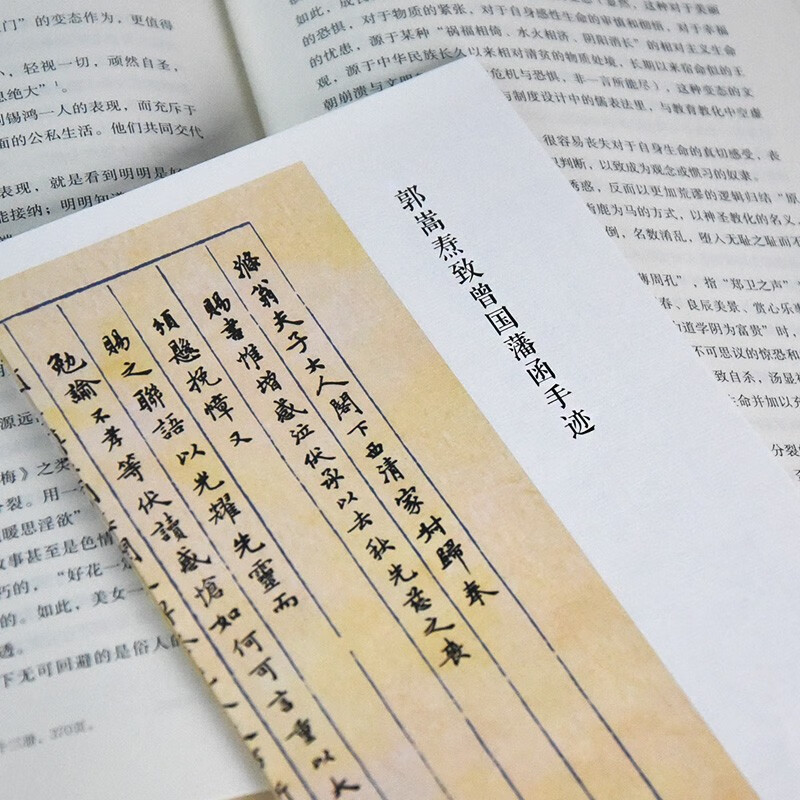 郭嵩焘致曾国藩函手迹
滌翁夫子大人閣下西清家尌歸奉
賜書惟增感泣伏承以去秋先慈之喪
頒懸挽幛又
賜之聯語以光耀先靈而
勉諭不孝等伏讀感愴如何可言重以大
门”的变态作为，更值得
、轻视一切，顽然自圣，
思绝大”¹。
锡鸿一人的表现，而充斥于
面的公私生活。他们共同交代
表现，就是看到明明是好
能接纳；明明知道
源远
梅》之类
分裂。用一
暖思淫欲”
故事甚至是色情
朽的，“好花一
的。如此，美女一
透。
下无可回避的是俗人的
370页。
的恐惧，对于物质的紧张，对于自身感性生命的审慎和憎恶，对于幸福
的忧患，源于某种“祸福相倚、水火相济、阴阳消长”的相对主义生命
观，源于中华民族长久以来相对清贫的物质处境，长期以来宿命似的王
朝崩溃与文明
危机与恐惧，非一言所能尽），这种变态的文
与制度设计中的儒表法里，与教育教化中空虚
很容易丧失对于自身生命的真切感受，丧
判断，以致成为观念或惯习的奴隶。
诱惑，反而以更加荒谬的逻辑归结“原
指鹿为马的方式，以神圣教化的名义，
倒，名教淆乱，堕人无耻之耻而不
薄周孔”，指“郑卫之声”
春、良辰美景、赏心乐事
道学阴为富贵”时，
不可思议的惊恐和
以致自杀，汤显祖
生命并加以充
分裂